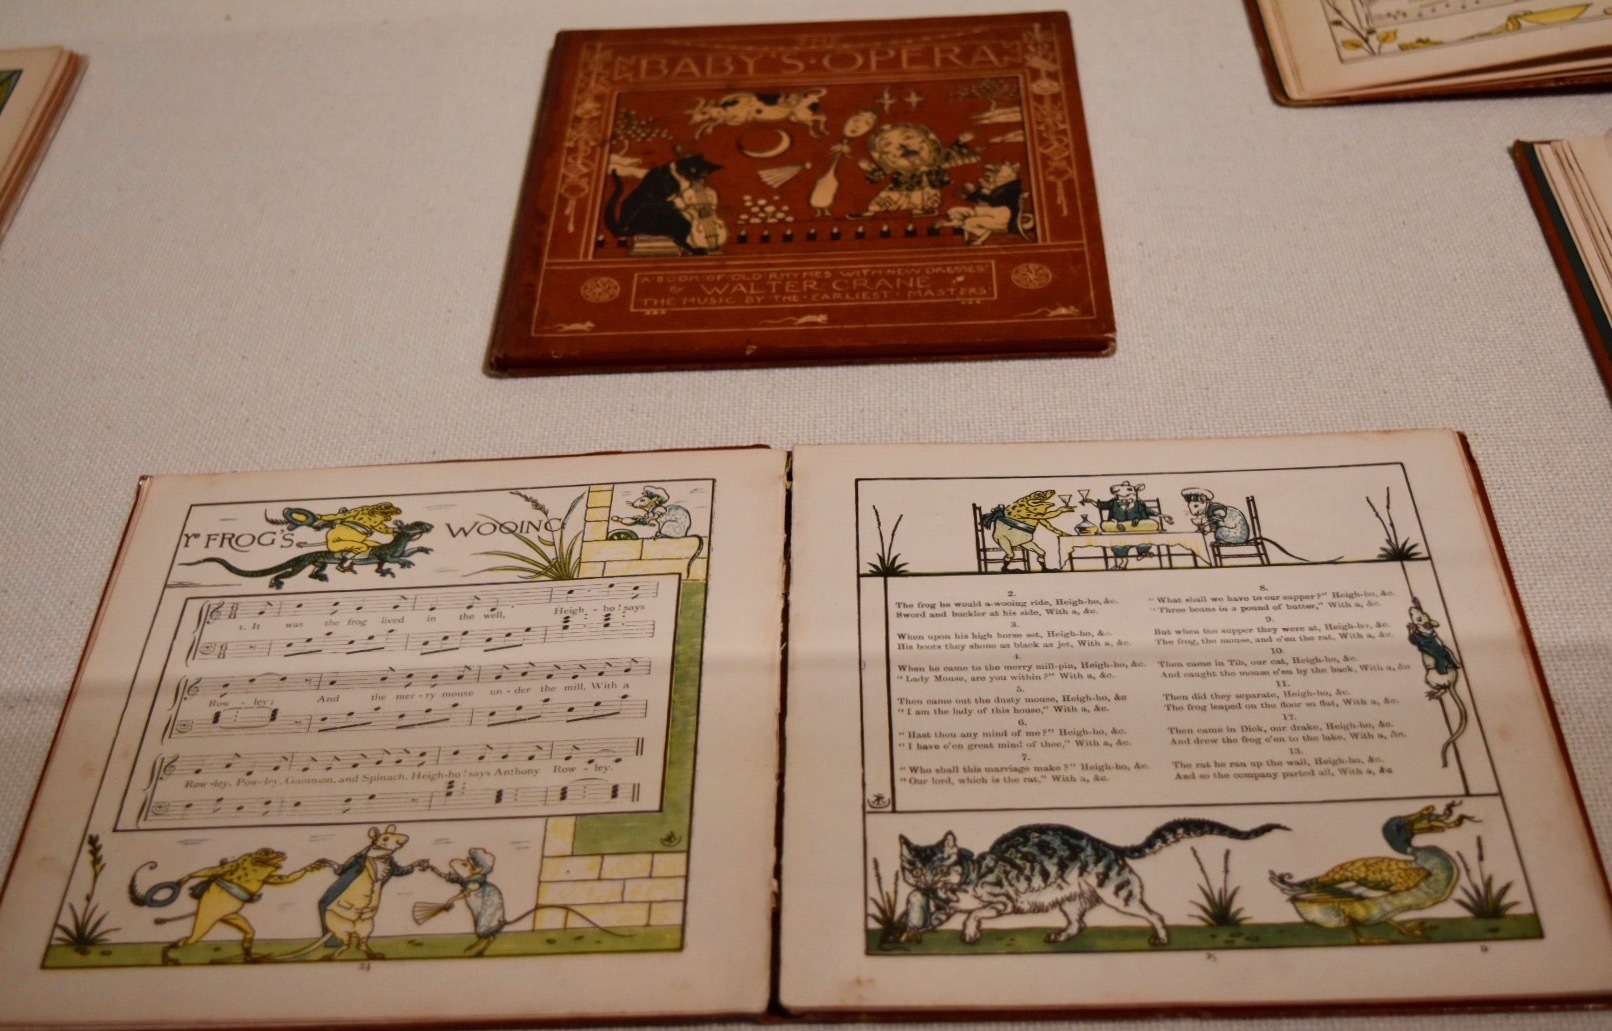 THE
BABY'S · OPERA
A · BOOK · OF · OLD · RHYMES · WITH · NEW · DRESSES
BY WALTER CRANE
THE MUSIC BY · THE · EARLIEST · MASTERS
Yᵉ FROG'S WOOING
1. It was the frog lived in the well, Heigh - ho! says
Row - ley; And the mer - ry mouse un - der the mill, With a
Row - ley, Pow - ley, Gammon, and Spinach, Heigh-ho! says Anthony Row - ley.
24
2.
The frog he would a-wooing ride, Heigh-ho, &c.
Sword and buckler at his side, With a, &c.
3.
When upon his high horse set, Heigh-ho, &c.
His boots they shone as black as jet, With a, &c.
4.
When he came to the merry mill-pin, Heigh-ho, &c.
"Lady Mouse, are you within?" With a, &c.
5.
Then came out the dusty mouse, Heigh-ho, &c.
"I am the lady of this house," With a, &c.
6.
"Hast thou any mind of me?" Heigh-ho, &c.
"I have e'en great mind of thee," With a, &c.
7.
"Who shall this marriage make?" Heigh-ho, &c.
"Our lord, which is the rat," With a, &c.
8.
"What shall we have to our supper?" Heigh-ho, &c.
"Three beans in a pound of butter," With a, &c.
9.
But when the supper they were at, Heigh-ho, &c.
The frog, the mouse, and e'en the rat, With a, &c.
10.
Then came in Tib, our cat, Heigh-ho, &c.
And caught the mouse e'en by the back, With a, &c
11.
Then did they separate, Heigh-ho, &c.
The frog leaped on the floor so flat, With a, &c.
12.
Then came in Dick, our drake, Heigh-ho, &c.
And drew the frog e'en to the lake, With a, &c.
13.
The rat he ran up the wall, Heigh-ho, &c.
And so the company parted all, With a, &c
25